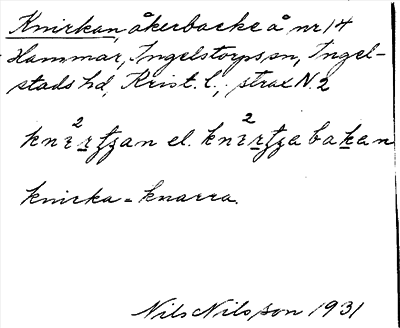 Knirkan, åkerbacke å nr 14
Hammar, Ingelstorps sn, Ingel-
stads hd, Krist. l., strax N. 2
el. bakan
knirka = knarra.
Nils Nilsson 1931